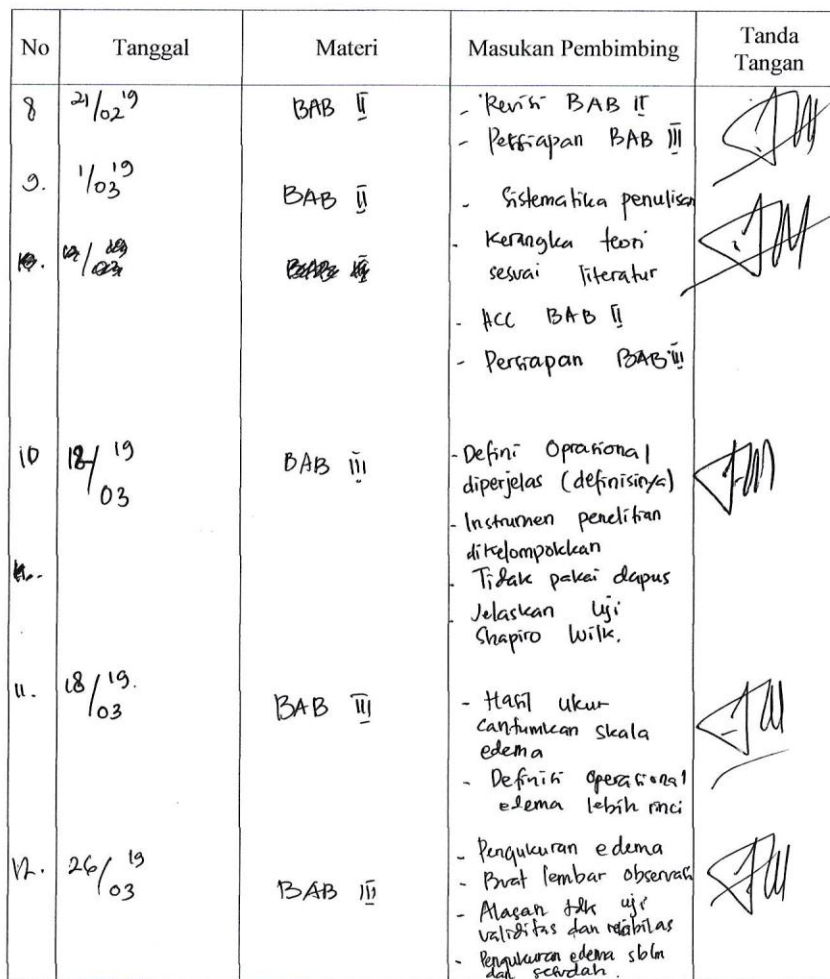 No Tanggal Materi Masukan Pembimbing Tanda
Tangan
8 21/02 19 BAB II - Revisi BAB II
- Perisiapan BAB III
9. 1/03 19 BAB II - Sistematika penulisan
- Kerangka teori
sesuai literatur
- ACC BAB II
- Persiapan BAB III
10 18/03 19 BAB III - Defini Oprasional
diperjelas (definisinya)
- Instrumen penelitian
dikelompokkan
- Tidak pakai dapus
- Jelaskan Uji
Shapiro Wilk.
11. 18/03 19. BAB III - Hasil ukur
cantumkan skala
edema
- Definisi operasional
edema lebih rinci
12. 26/03 19 BAB III - Pengukuran edema
- Buat lembar observasi
- Alasan tdk uji
validitas dan
- Pengukuran edema sblm
dan sesudah.